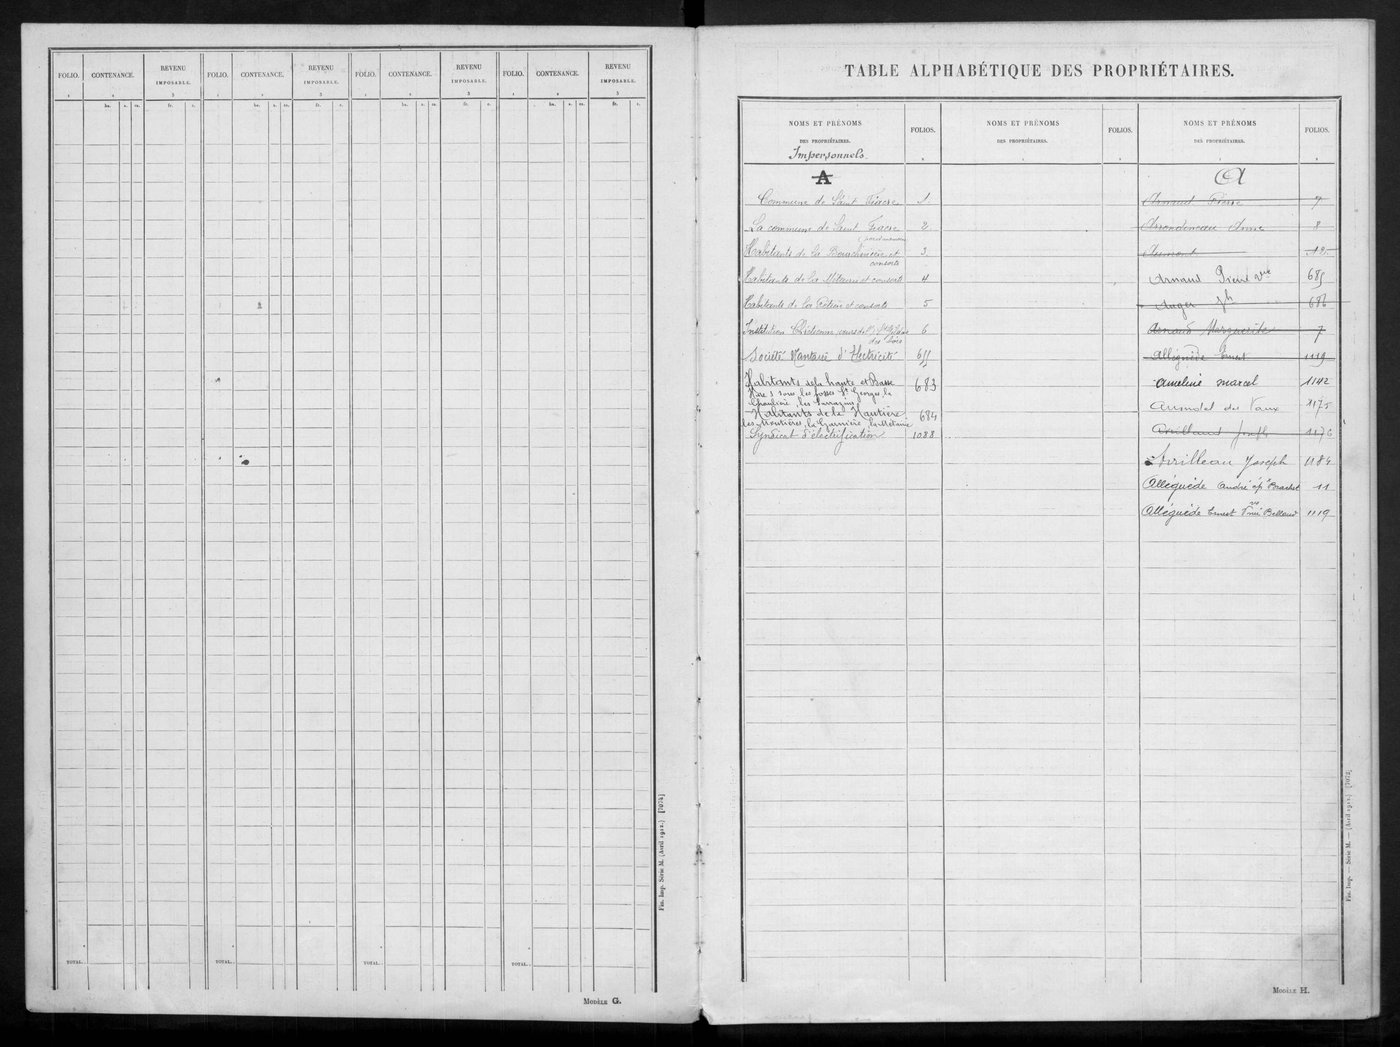 FOLIO. CONTENANCE. REVENU IMPOSABLE. FOLIO. CONTENANCE. REVENU IMPOSABLE. FOLIO. CONTENANCE. REVENU IMPOSABLE. FOLIO. CONTENANCE. REVENU IMPOSABLE.
1 2 3 1 2 3 1 2 3 1 2 3
ha. a. ca. fr. c. ha. a. ca. fr. c. ha. a. ca. fr. c. ha. a. ca. fr. c.
TOTAL. TOTAL. TOTAL. TOTAL.
Fin. Imp. Série M. (Avril 1912.) [7074]
MODÈLE G.
TABLE ALPHABÉTIQUE DES PROPRIÉTAIRES.
NOMS ET PRÉNOMS
DES PROPRIÉTAIRES.
FOLIOS.
Impersonnels.
A
Commune de Saint Fiacre 1
La commune de Saint Fiacre 2
Habitants de la et consorts 3
Habitants de la Métairie et consorts 4
Habitants de la et consorts 5
Institution Chrétienne 6
des Bois
Société Nantaise d'Electricité 611
Habitants de la haute et Basse 683
les fosses St Georges, la
Habitants de la Hautière 684
les Moutières, la Garnière, la Métairie
Syndicat d'électrification 1088
NOMS ET PRÉNOMS
DES PROPRIÉTAIRES.
FOLIOS.
NOMS ET PRÉNOMS
DES PROPRIÉTAIRES.
FOLIOS.
A
Arnaud Pierre 7
Arrondineau Anne 8
Aumont 12
Arnaud Pierre Vve 685
Auger Jh 686
Arnaud Marguerite 7
Alléguède Ernest 1119
Ameline Marcel 1142
des Vaux 1175
Joseph 1176
Avrilleau Joseph 1184
Alléguède André ép. 11
Alléguède Ernest Vve née 1119
Fin. Imp. — Série M. — (Avril 1912.) [7072]
MODÈLE H.